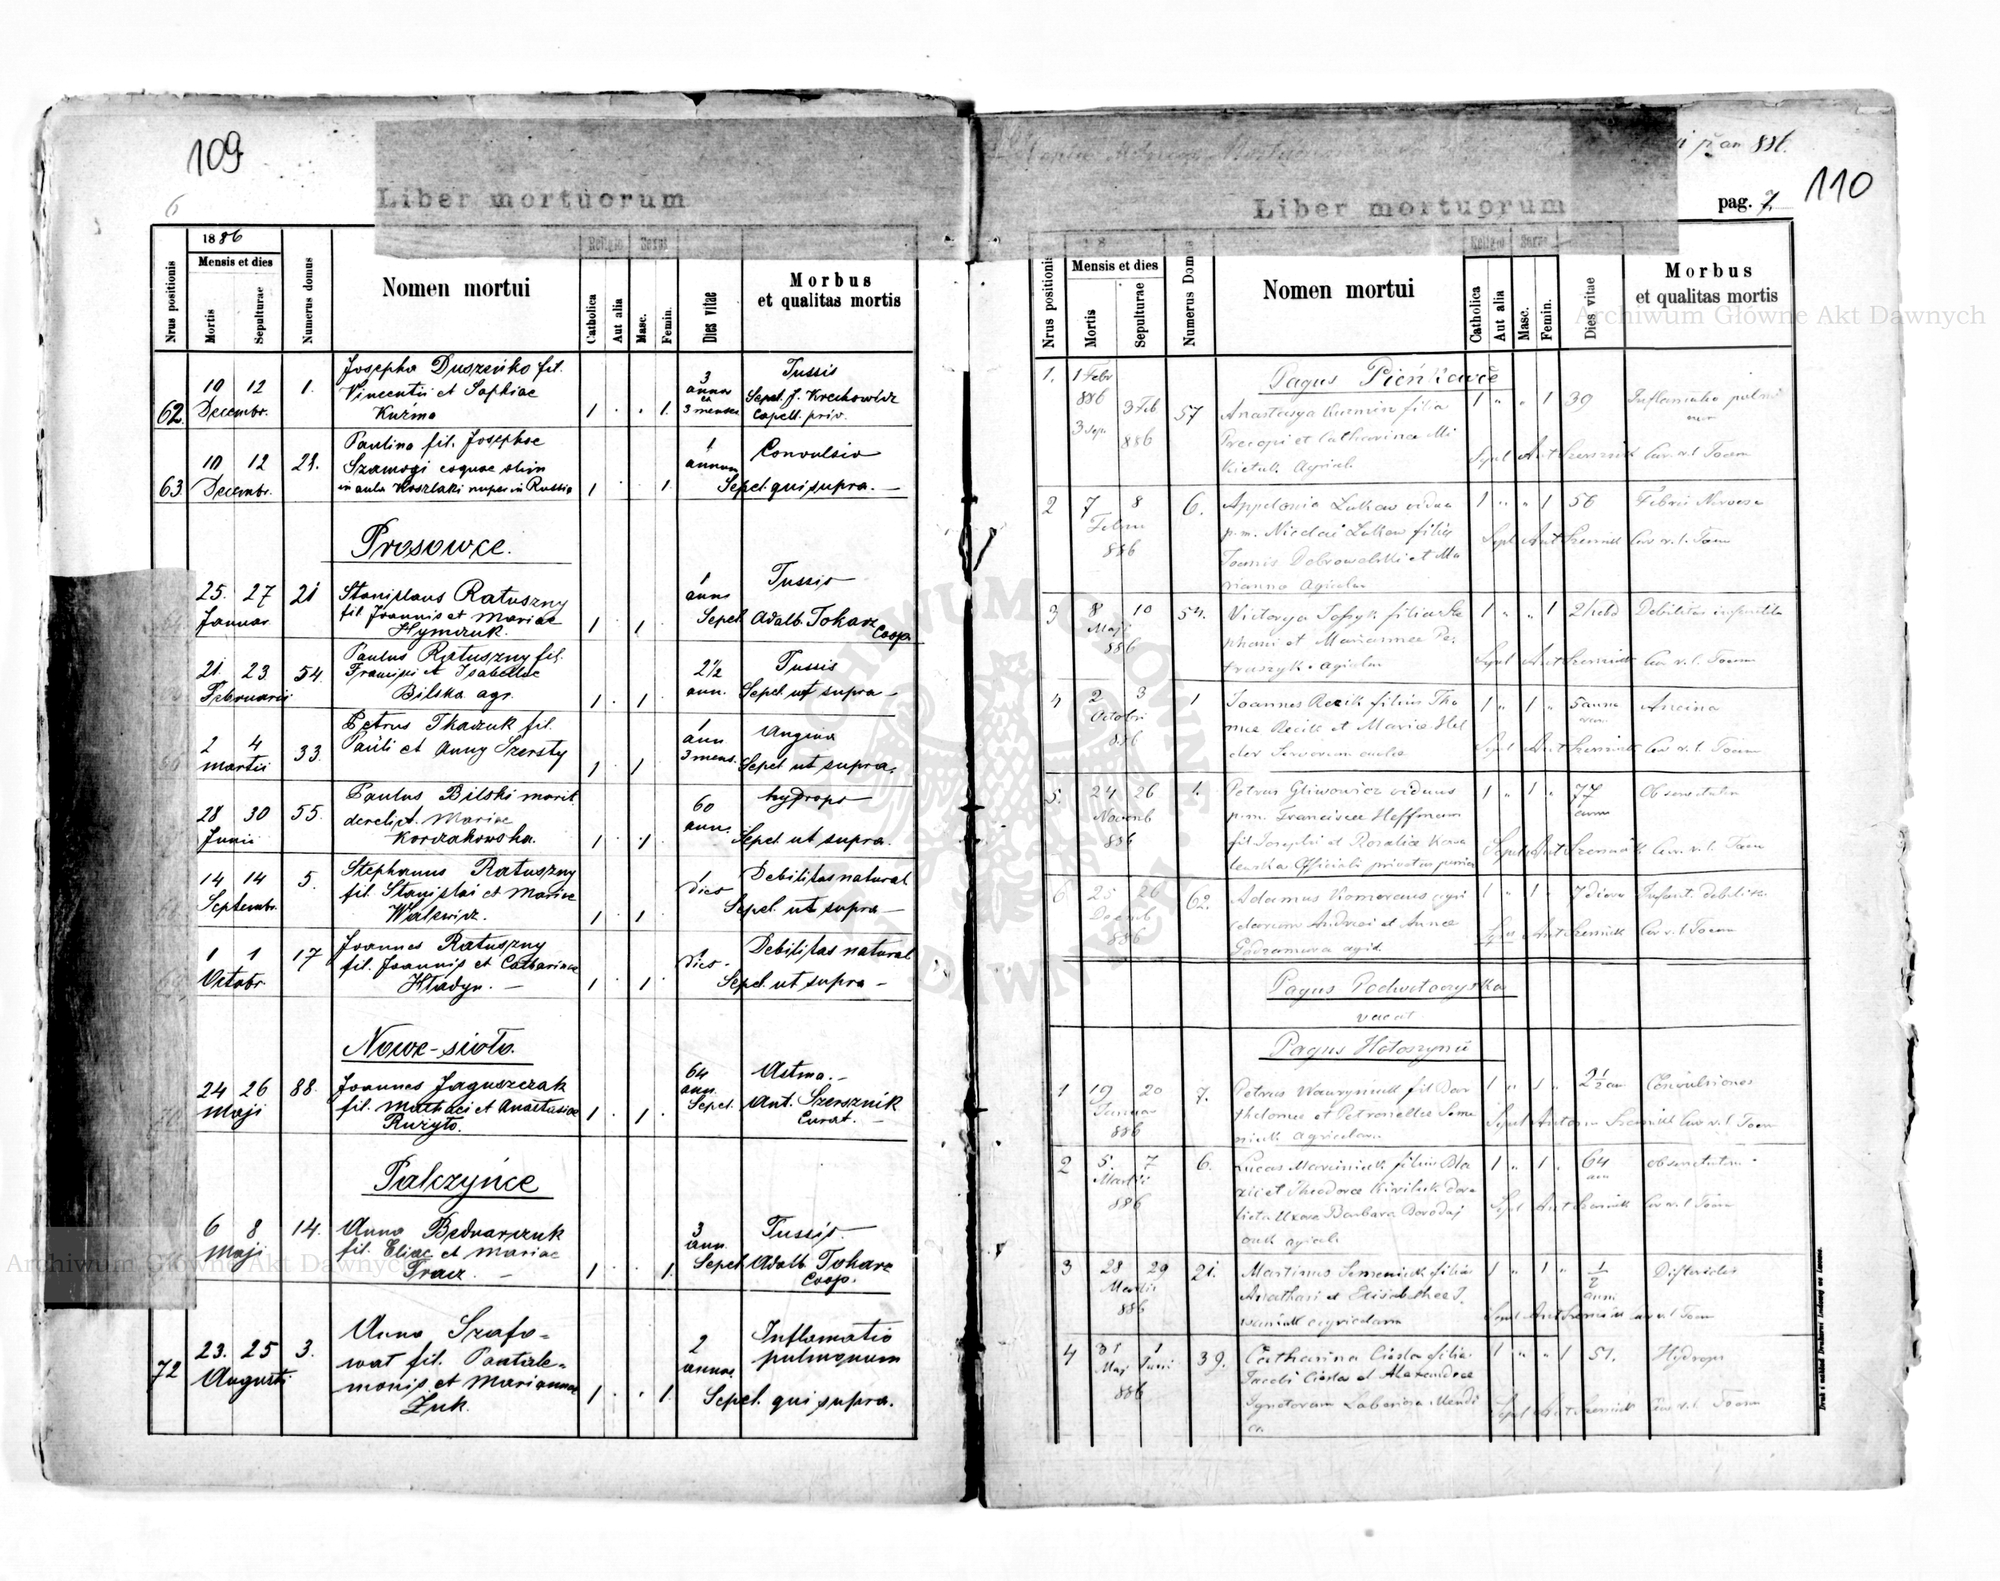 109
6
Liber mortuorum
1886
Religio
Sexus
Nrus positionis
Mensis et dies
Mortis
Sepulturae
Numerus domus
Nomen mortui
Catholica
Aut alia
Masc.
Femin.
Dies vitae
Morbus
et qualitas mortis
62. 10 12 Decembr. 1.
Josepha Duszeńko fil.
Vincentii et Sophiae
Kuzma
1 1.
3 annor et 3 menses
Tussis
Sepel. J. Krechowicz
Capell. priv.
63. 10 12 Decembr. 23.
Paulina fil. Josephae
Szamogi coquae olim
in aula Koszlaki nuper in Russia
1 1
1 annum
Convulsio
Sepel. qui supra.
Prosowce.
25. 27 Januar. 21
Stanislaus Ratuszny
fil. Joannis et Mariae
Hymczuk.
1 1
1 ann.
Tussis
Sepel. Adalb. Tokarz
Coop.
21. 23. Februarii 54.
Paulus Ratuszny fil.
Francisci et Isabellae
Bilska agr.
1 1
2½ ann.
Tussis
Sepel. ut supra
2 4 Martii 33.
Petrus Tkaczuk fil.
Pauli et Anny Szersty
1 1
1 ann 3 mens.
Angina
Sepel. ut supra.
28 30 Junii 55.
Paulus Bilski marit.
derelict. Mariae
Korzakowska.
1 1
60 ann.
hydrops
Sepel. ut supra.
14 14 Septembr. 5.
Stephanus Ratuszny
fil. Stanislai et Mariae
Walewicz.
1 1
1 dies
Debilitas natural.
Sepel. ut supra
1 1 Octobr. 17
Joannes Ratuszny
fil. Joannis et Catharinae
Hladyn.
1 1
1 dies.
Debilitas natural
Sepel. ut supra
Nowe-sioło.
24 26 Maji 88.
Joannes Jaguszczak
fil. Mathaei et Anastasiae
Ruzyło.
1 1
64 ann.
Astma.
Sepel. Ant. Szersznik
Curat.
Palczyńce
6 8 Maji 14.
Anna Bednarczuk
fil. Eliae et Mariae
Tracz.
1 1.
3 ann.
Tussis.
Sepel. Adalb. Tokarz
Coop.
72 23. 25 Augusti 3.
Anna Szafo-
wat fil. Pantale-
monis et Mariannae
Żuk.
1 1.
2 annos.
Inflamatio
pulmonum
Sepel. qui supra.
110
Liber mortuorum
pag. 7.
Religio
Sexus
Nrus positionis
Mensis et dies
Mortis
Sepulturae
Numerus Domus
Nomen mortui
Catholica
Aut alia
Masc.
Femin.
Dies vitae
Morbus
et qualitas mortis
Pagus Pieńkowce
1. 1 Febr 886 3 Feb 886 57
Anastasya Kuzmin filia
Precopi et Catharinae Mi
kietuk Agricol.
1 1 39
Sepel Ant Szersznik Cur. r. l. Toem
2 7 8 Febru 886 6.
Appolonia Lukow vidua
p.m. Nicolai Lukow filia
Joanis Dobrowolski et Ma
rianna Agricolar
1 1 56
Febris Nervosa
Sepel Ant Szersznik Cur r. l. Toem
3 8 10 Maji 886 54.
filia Ste
phani et Mariannae Pe.
traszyk. agicolar
1 1
Debilitas infantilis
Sepel Ant Szersznik Cur r. l. Toem
4 2 3 Octobri 886 1
Joannes Rezik filius Tho
mae Recik et Maria Hel
der Servorum aulae
1 1 5 annor
Angina
Sepel Ant Szersznik Cur r. l. Toem
5. 24 26 Novemb 886 1.
Petrus Gliwowicz viduus
p.m. Franciscae Hoffmann
fil Josephi et Rosaliae
1 1 77 annor
Sepel Ant Szersznik Cur. r. l. Toem
6 25 26 Decemb 886 62.
Adamus Komarcus agri
colarum Andreai et Annae
1 1 7 dierum
Infant. debilitas
Sepel Ant Szersznik Cur r. l. Toem
Pagus Podwołoczyska
vacat
Pagus Hołoszyńce
1 19 20 Januar 886 7.
Petrus Wawryniuk fil Bar
tholomei et Petronellae Seme
niuk agricolarum
1 1 2½ an
Convulsiones
Sepel Antonius Szersznik Cur r. l. Toem
2 5. 7 Martii 886 6.
Lucas Marciniuk filius Bla
zii et Theodorae Kiriluk dere
licta Uxore Barbara
1 1 64 ann
Sepel Ant Szersznik Cur r. l. Toem
3 28 29 Martii 886 21.
Martinus Semeniuk filius
et Elisabethae J.
waniuk agricolarum
1 1 ½ anni
Disteritis
Sepel Ant Szersznik Cur r. l. Toem
4 31 Maj 1 Junii 886 39.
Catharina Ciesla filia
Jacobi Ciesla et Alexandrae
1 1 51.
Hydrops
Sepel Ant Szersznik Cur r. l. Toem
Archiwum Główne Akt Dawnych
Archiwum Główne Akt Dawnych
ARCHIWUM GŁÓWNE AKT DAWNYCH